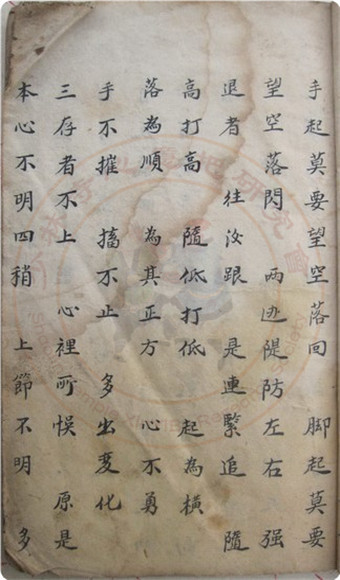 手起莫要望空落回　脚起莫要
望空落閃　兩迯隄防左右　强
退者　往汝跟　是連緊追　隨
高打高　隨低打低　起為橫
落為順　為其正方　心不勇
手不摧　擣不止　多出变化
三存者不上　心裡所悞　原是
本心不明四稍　上節不明　多